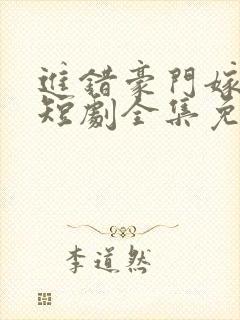 進錯豪門嫁
短劇全集免
李道然